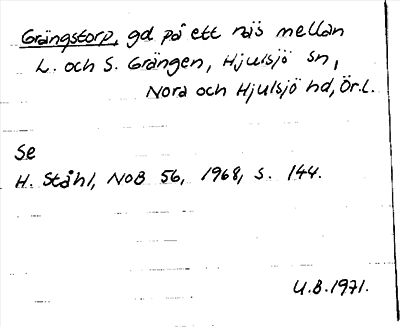 Grängstorp, gd på ett näs mellan
L. och S. Grängen, Hjulsjö sn,
Nora och Hjulsjö hd, Ör.L.
Se
H. Ståhl, NoB 56, 1968, s. 144.
U.B.1971.